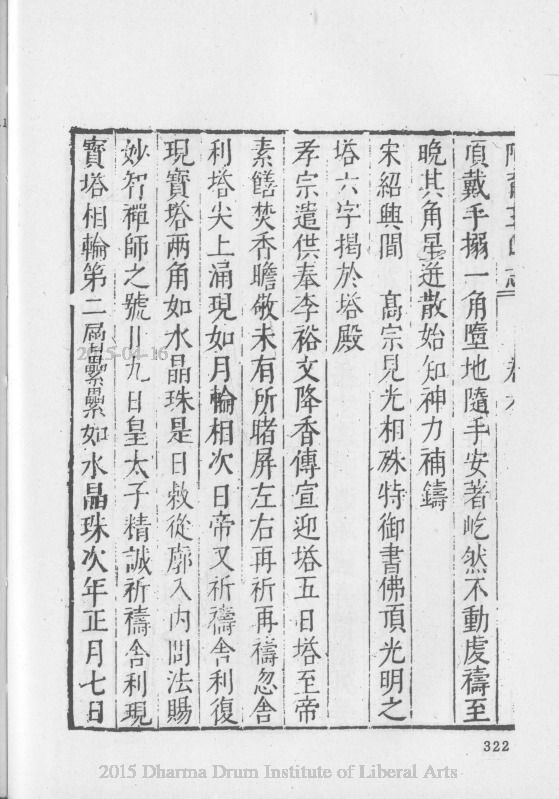 頂戴手搦一角墮地隨手安著屹然不動虔禱至
晚其角星迸散始知神力補鑄
宋紹興間 高宗見光相殊特御書佛頂光明之
塔六字揭於塔殿
孝宗遣供奉李裕文降香傳宣迎塔五日塔至帝
素饍焚香瞻敬未有所睹屏左右再祈再禱忽舍
利塔尖上涌現如月輪相次日帝又祈禱舍利復
現寶塔兩角如水晶珠是日敕從廓入內問法賜
妙智禪師之號廿九日皇太子精誠祈禱舍利現
寶塔相輪第二層纍纍如水晶珠次年正月七日
322
2015-04-16
2015 Dharma Drum Institute of Liberal Arts